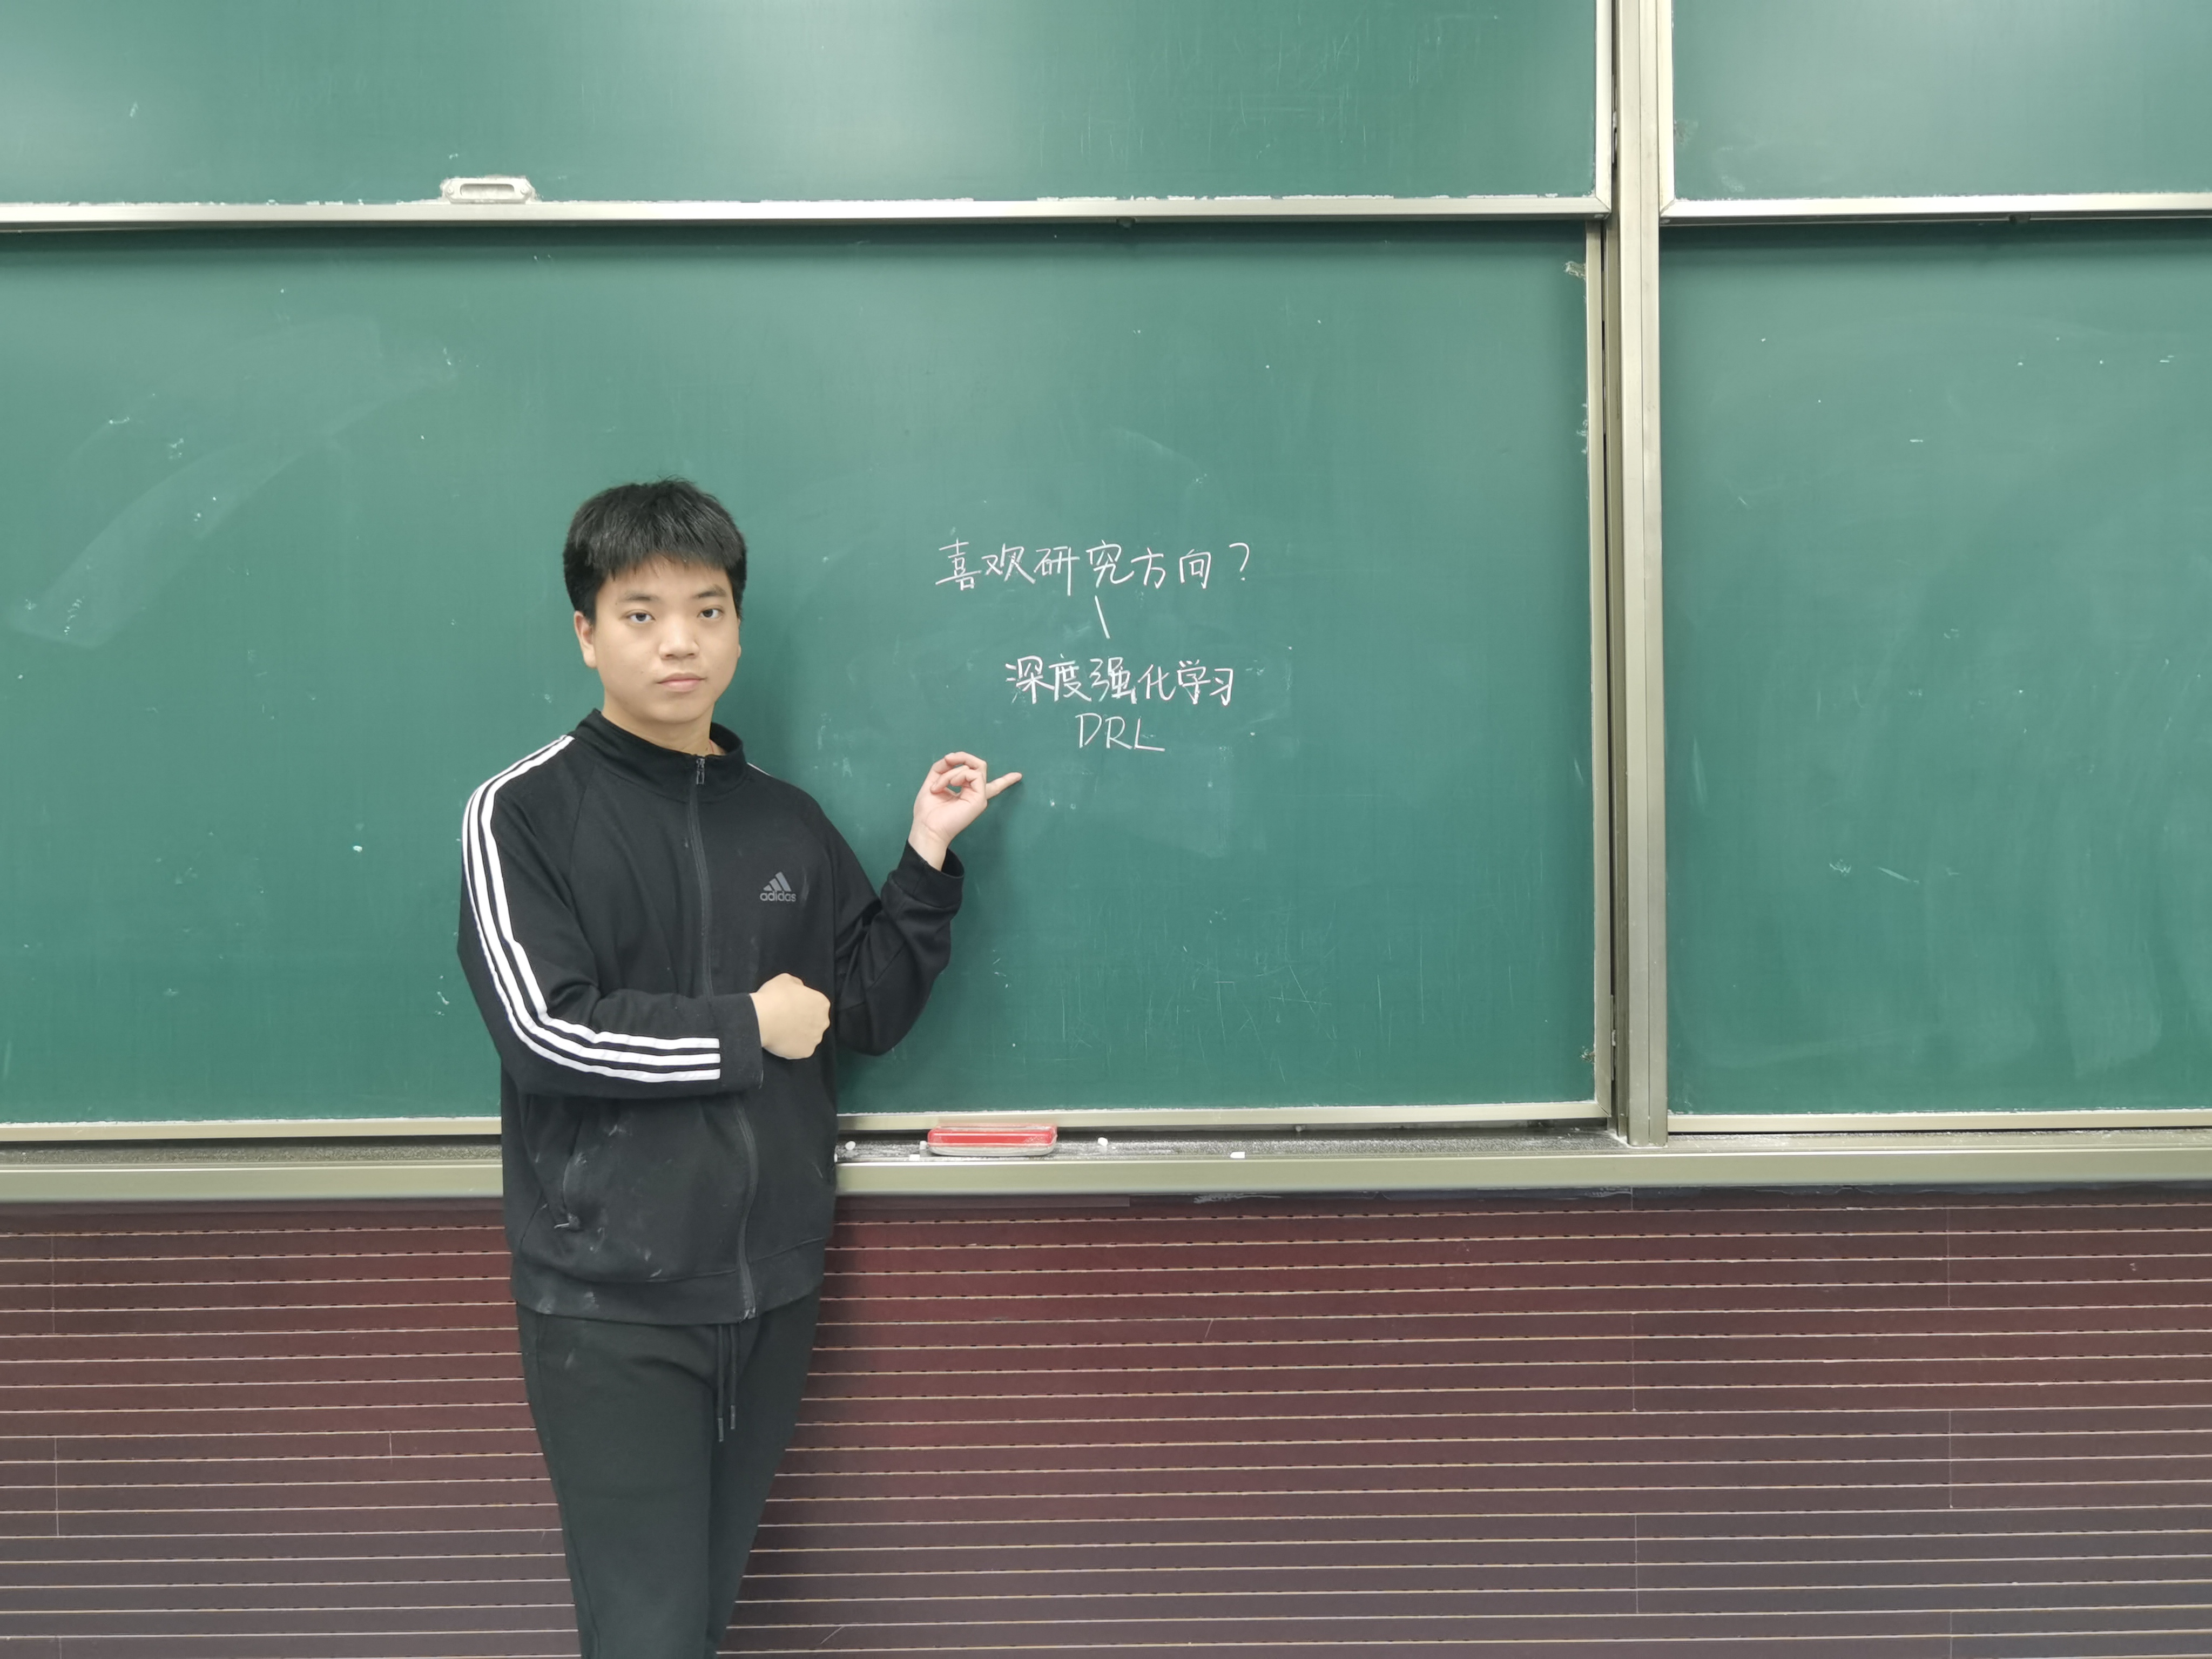 喜欢研究方向?
深度强化学习
DRL
adidas